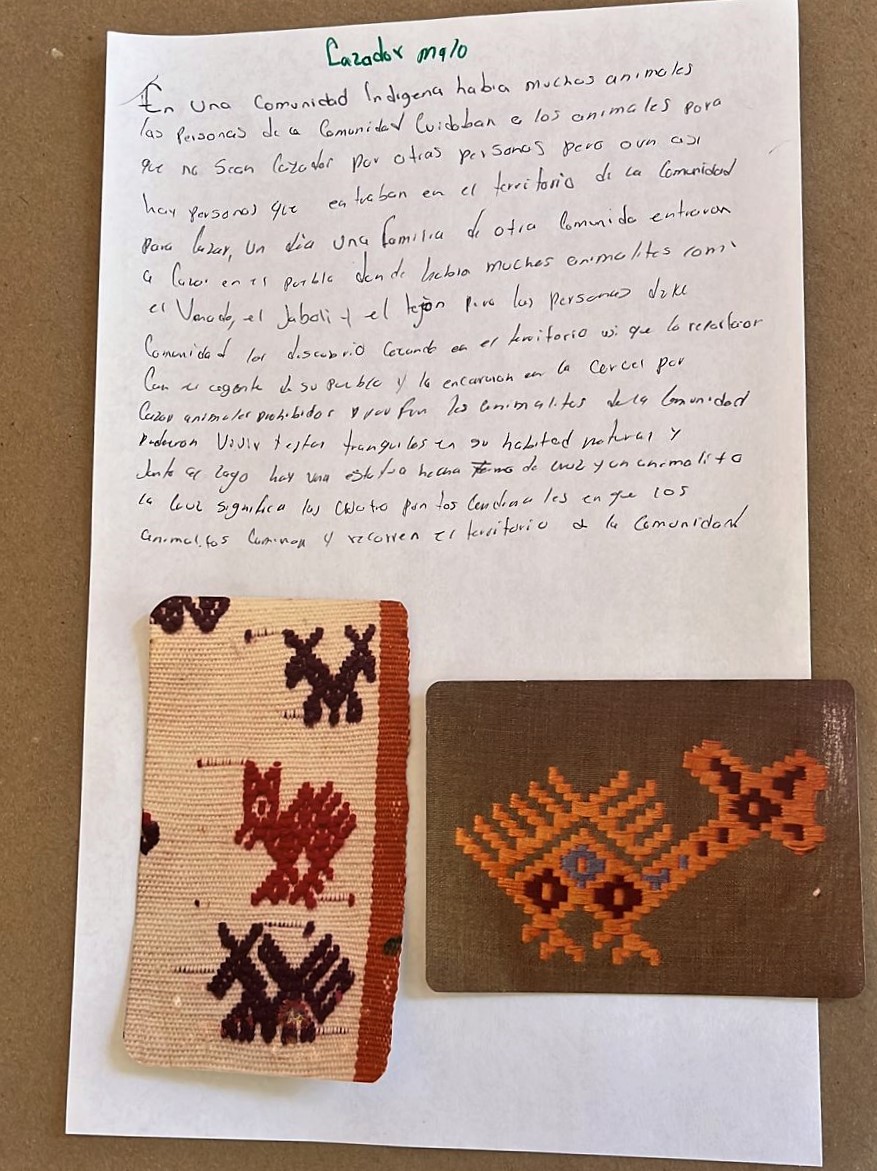 Cazador malo
En una Comunidad Indigena habia muchos animales
las Personas de la Comunidad Cuidaban a los animales para
que no sean Cazados por otras personas pero aun asi
hay personas que entraban en el territorio de la Comunidad
para Cazar, un dia una familia de otra Comunida entraron
a Cazar en el pueblo donde habia muchos animalitos como
el Venado, el Jabali y el tejón pero las personas de
Comunidad los discubrio Cazando en el territorio asi que lo
Con el de su pueblo y la en la Carcel por
Cazar animales prohibidos y por fin los animalitos de la Comunidad
pudieron Vivir y estar tranquilos en su habitad natural y
Junto al lago hay una estatua hecha de cruz y un animalito
la Cruz significa los Cuatro puntos Cardinales en que los
animalitos Caminan y recorren el territorio de la Comunidad